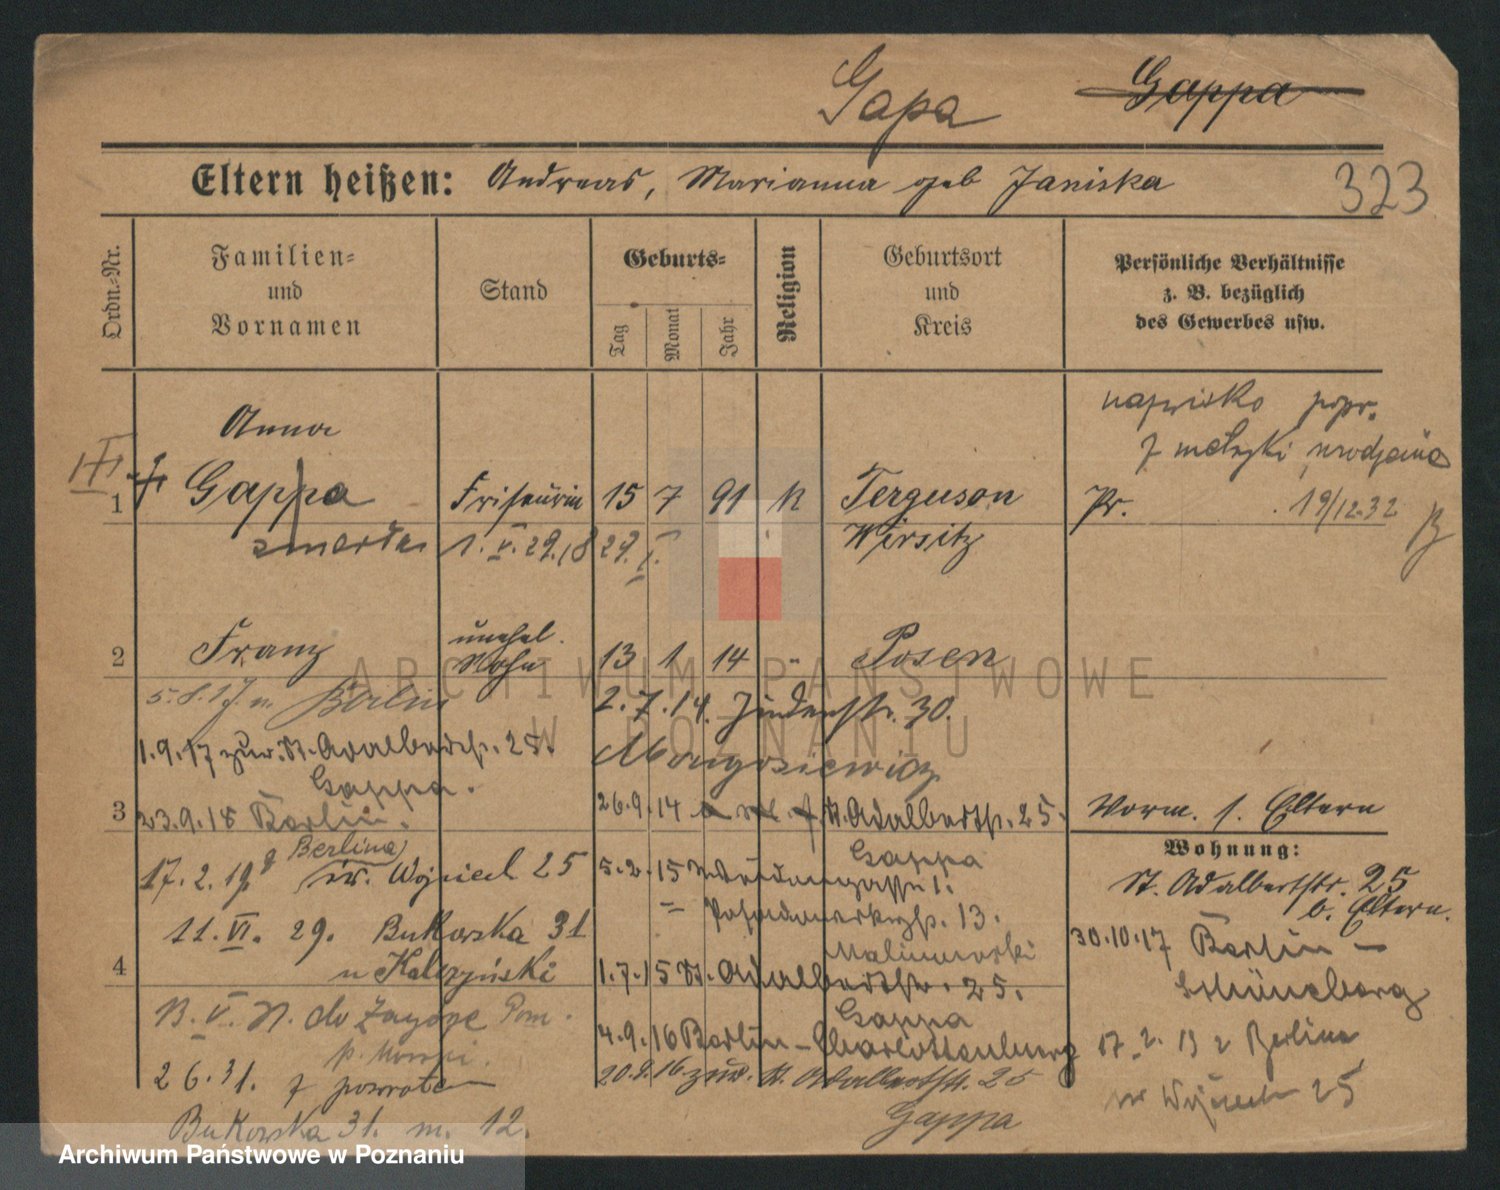 Gapa Gappa
Eltern heißen: Andreas, Marianna geb Janiska
323
Ordn.-Nr.
Familien-
und
Vornamen
Stand
Geburts-
Tag
Monat
Jahr
Religion
Geburtsort
und
Kreis
Persönliche Verhältnisse
z. B. bezüglich
des Gewerbes usw.
Anna
nazwisko popr.
z metryki urodzenia
1 Gappa Friseurin 15 7 91 k Ferguson Pr. 19/12.32
zmarła 1. V. 29. Wirsitz
Franz unehel.
2 Sohn 13 1 14 " Posen
5.8.17 n. Berlin
2.7.14. Judenstr. 30.
1.9.17 zur. St. Adalbertstr. 25.
Gappa.
3 23.9.18 Berlin.
26.9.14 St. Adalbertstr. 25.
Vorm. s. Eltern
Wohnung:
St. Adalbertstr. 25
b. Eltern.
Berlina
17.2.19 św. Wojciech 25
Gappa
5.2.15
13.
11. VI. 29. Bukowska 31
u Kałczyński
Malinowski
4
1.7.15 St. Adalbertstr. 25.
Gappa
30.10.17 Berlin -
Schöneberg
do Zagórze Pom.
4.9.16 Berlin - Charlottenburg
17.2.19 z Berlina
2 6.31. z powrotem
20.9.16 zur. St. Adalbertstr. 25
Gappa
św Wojciech 25
Bukowska 31. m. 12.
ARCHIWUM PAŃSTWOWE
W POZNANIU
Archiwum Państwowe w Poznaniu